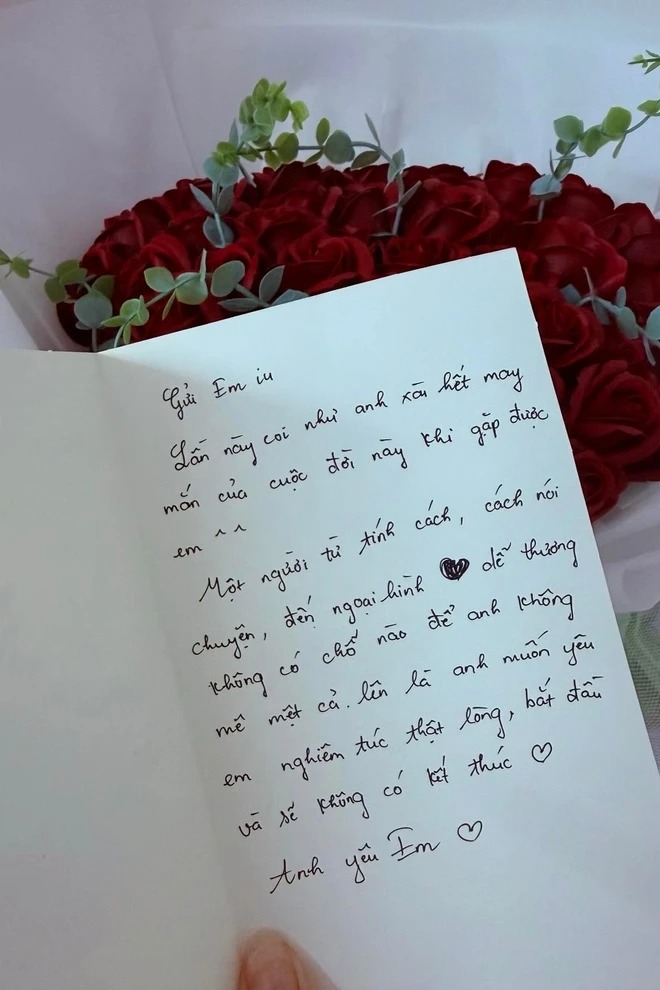 Gửi Em iu
Lần này coi như anh xài hết may
mắn của cuộc đời này khi gặp được
em ^^
Một người từ tính cách, cách nói
chuyện, đến ngoại hình dễ thương
không có chỗ nào để anh không
mê mệt cả. lên là anh muốn yêu
em nghiêm túc thật lòng, bắt đầu
và sẽ không có kết thúc ♡
Anh yêu Em ♡